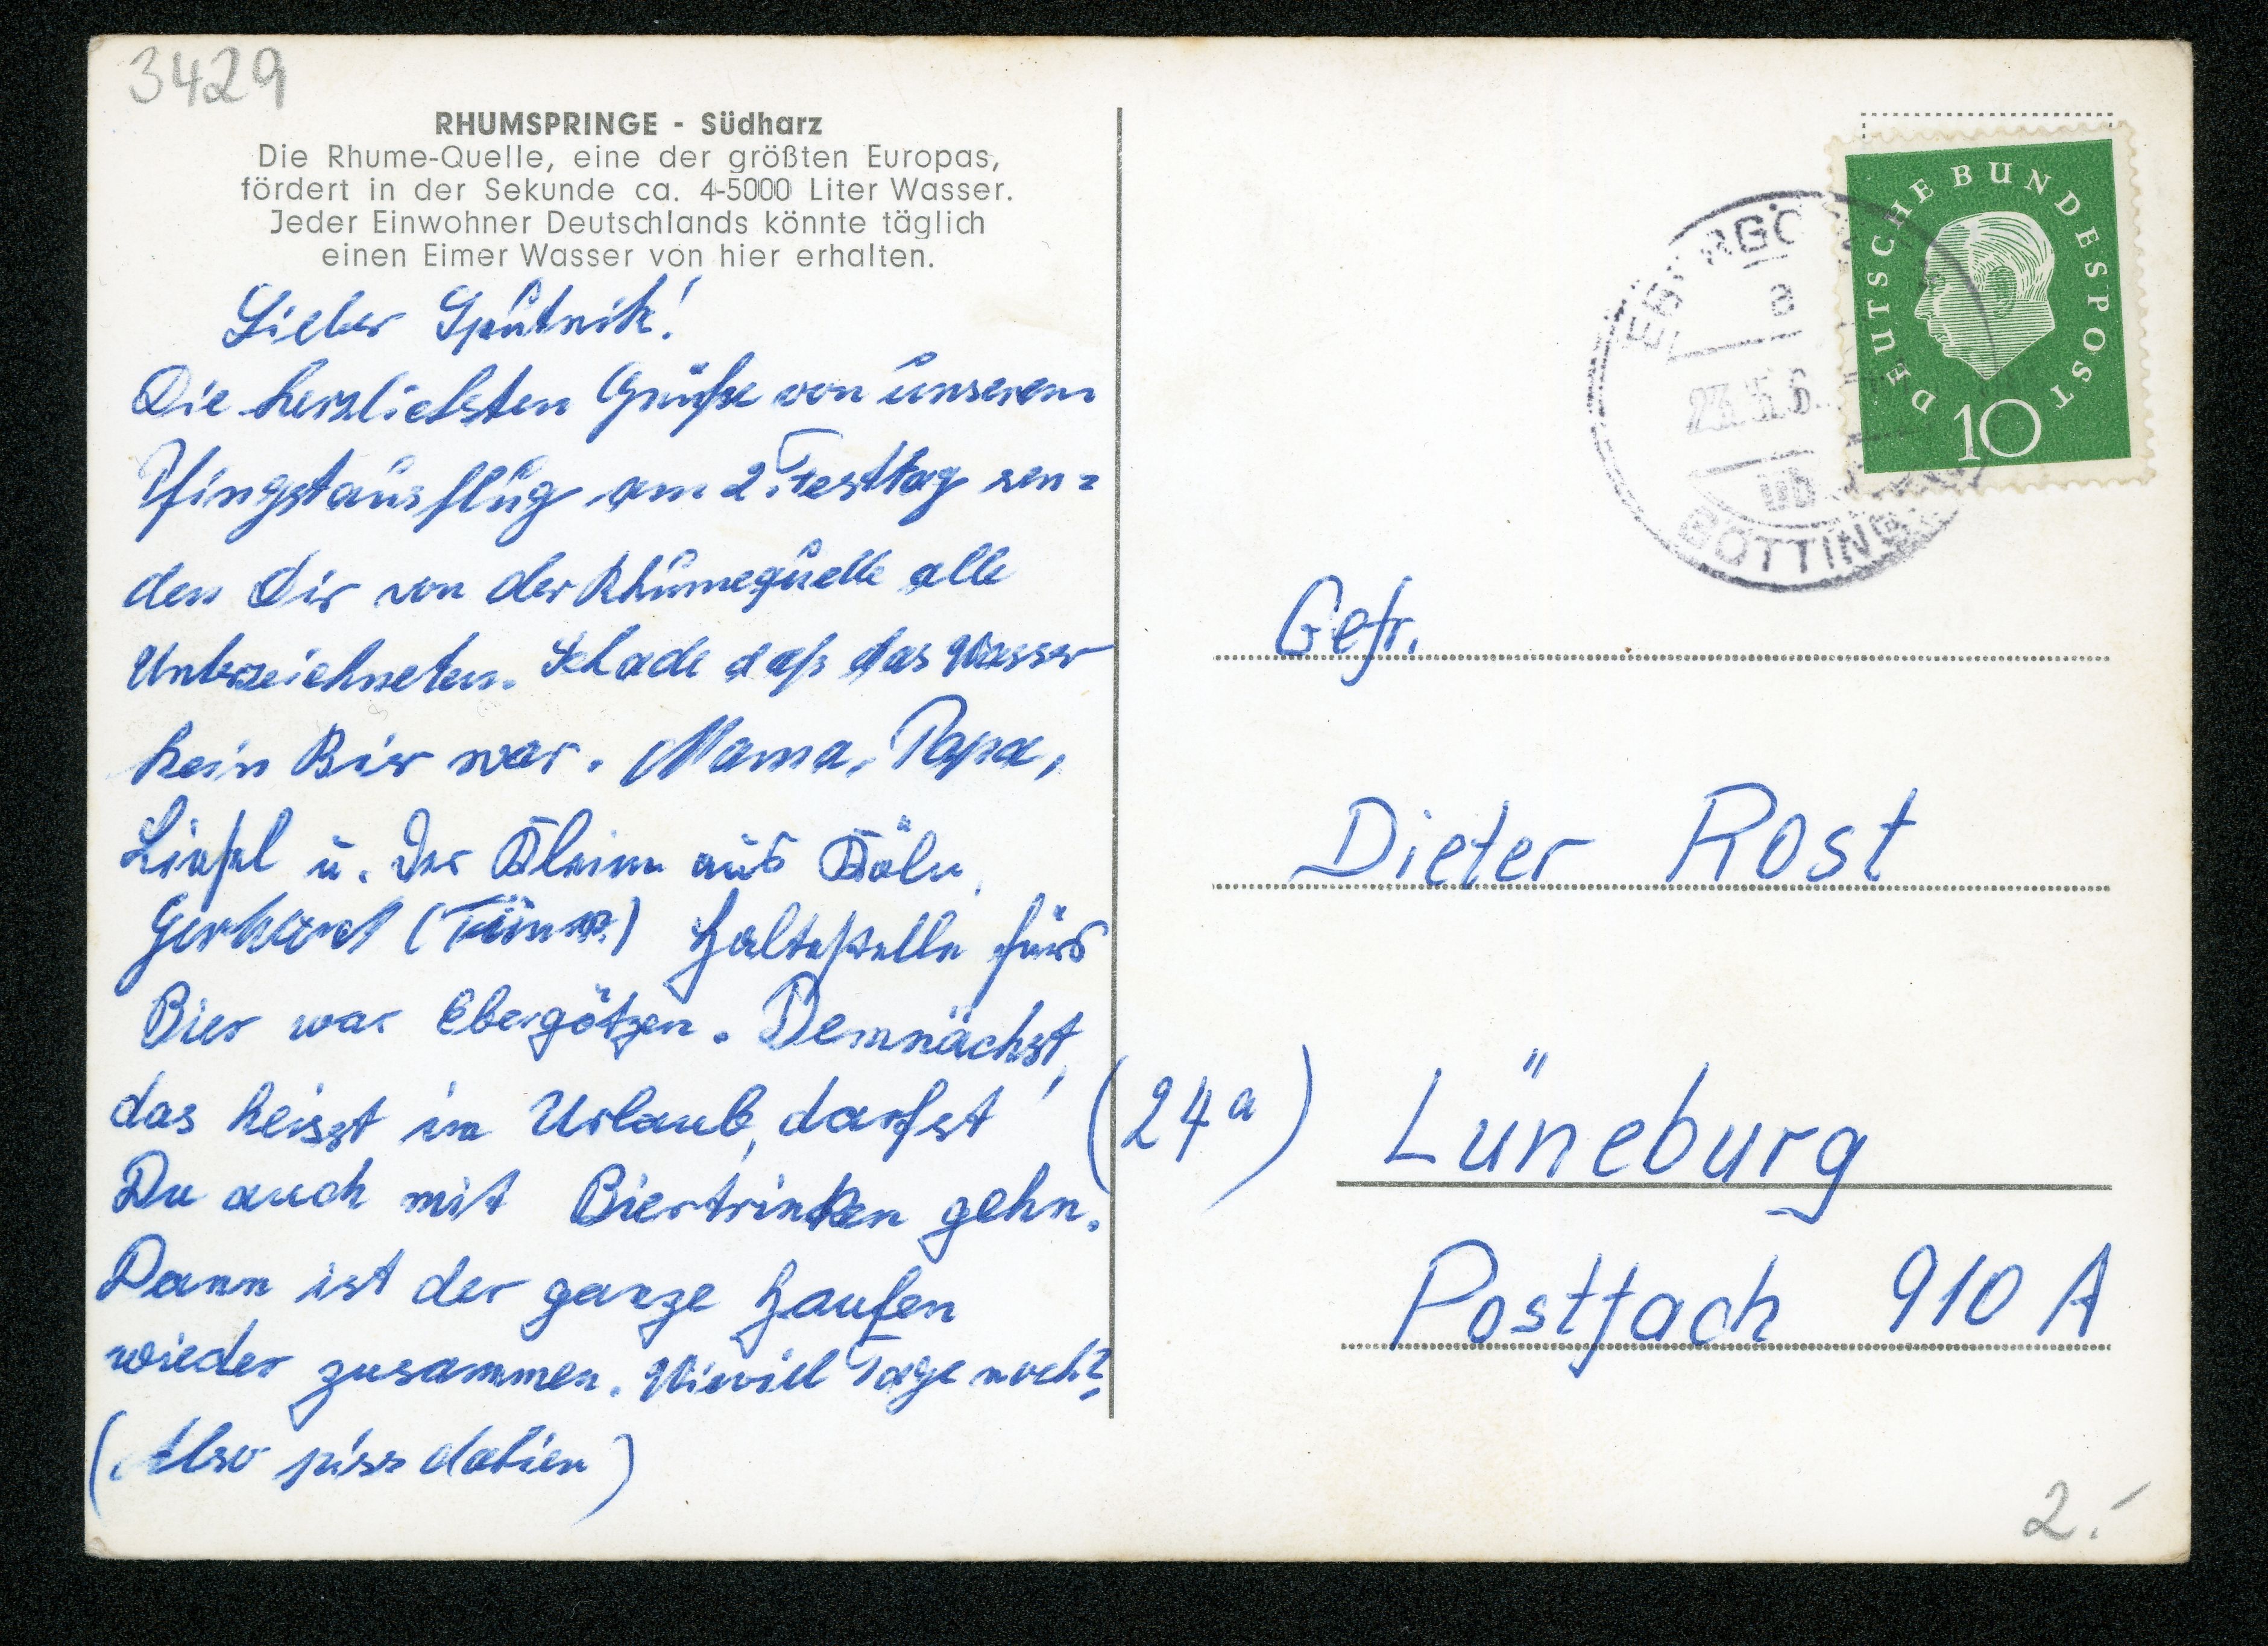 3429
RHUMSPRINGE - Südharz
Die Rhume-Quelle, eine der größten Europas,
fördert in der Sekunde ca. 4-5000 Liter Wasser.
Jeder Einwohner Deutschlands könnte täglich
einen Eimer Wasser von hier erhalten.
Lieber Spütnik!
Die herzlichsten Grüße von unserem
Pfingstausflug am 2. Festtag sen=
den Dir von der Rhumequelle alle
Unterzeichneten. Schade daß das Wasser
kein Bier war. Mama, Papa,
Liesel u. Der Kleine aus Köln,
Gerhard Haltestelle fürs
Bier war Ebergötzen. Demnächst,
das heisst im Urlaub, darfst
Du auch mit Biertrinken gehn.
Dann ist der ganze Haufen
wieder zusammen. Wieviel Tage noch?
(Also piss dahin)
DEUTSCHE BUNDESPOST
10
a
GÖTTING
Gefr.
Dieter Rost
(24a) Lüneburg
Postfach 910 A
2.-